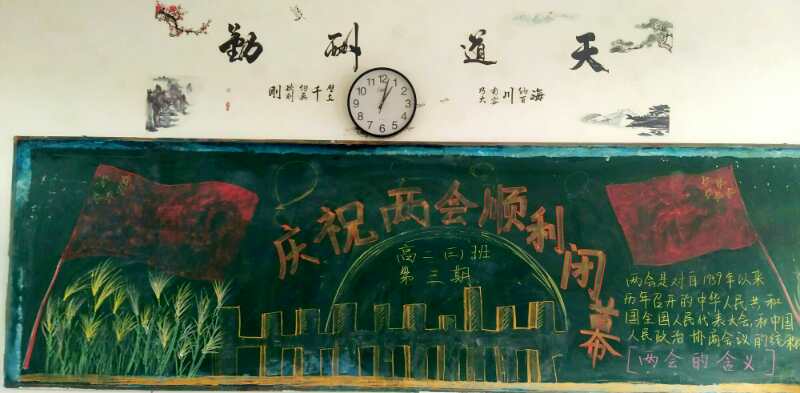 天道酬勤
海纳百川 有容乃大
壁立千仞 无欲则刚
12
1
2
3
4
5
6
7
8
9
10
11
庆祝两会顺利闭幕
高二(三)班
第三期
两会是对自1959年以来
历年召开的中华人民共和
国全国人民代表大会,和中国
人民政治协商会议的统称
[两会的含义]